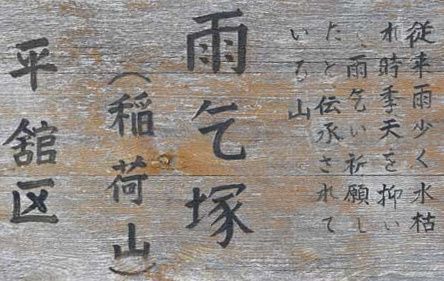 従来雨少く水枯
れ時季天を抑い
、雨乞い祈願し
たと伝承されて
いる山
雨乞塚
(稲荷山)
平舘区